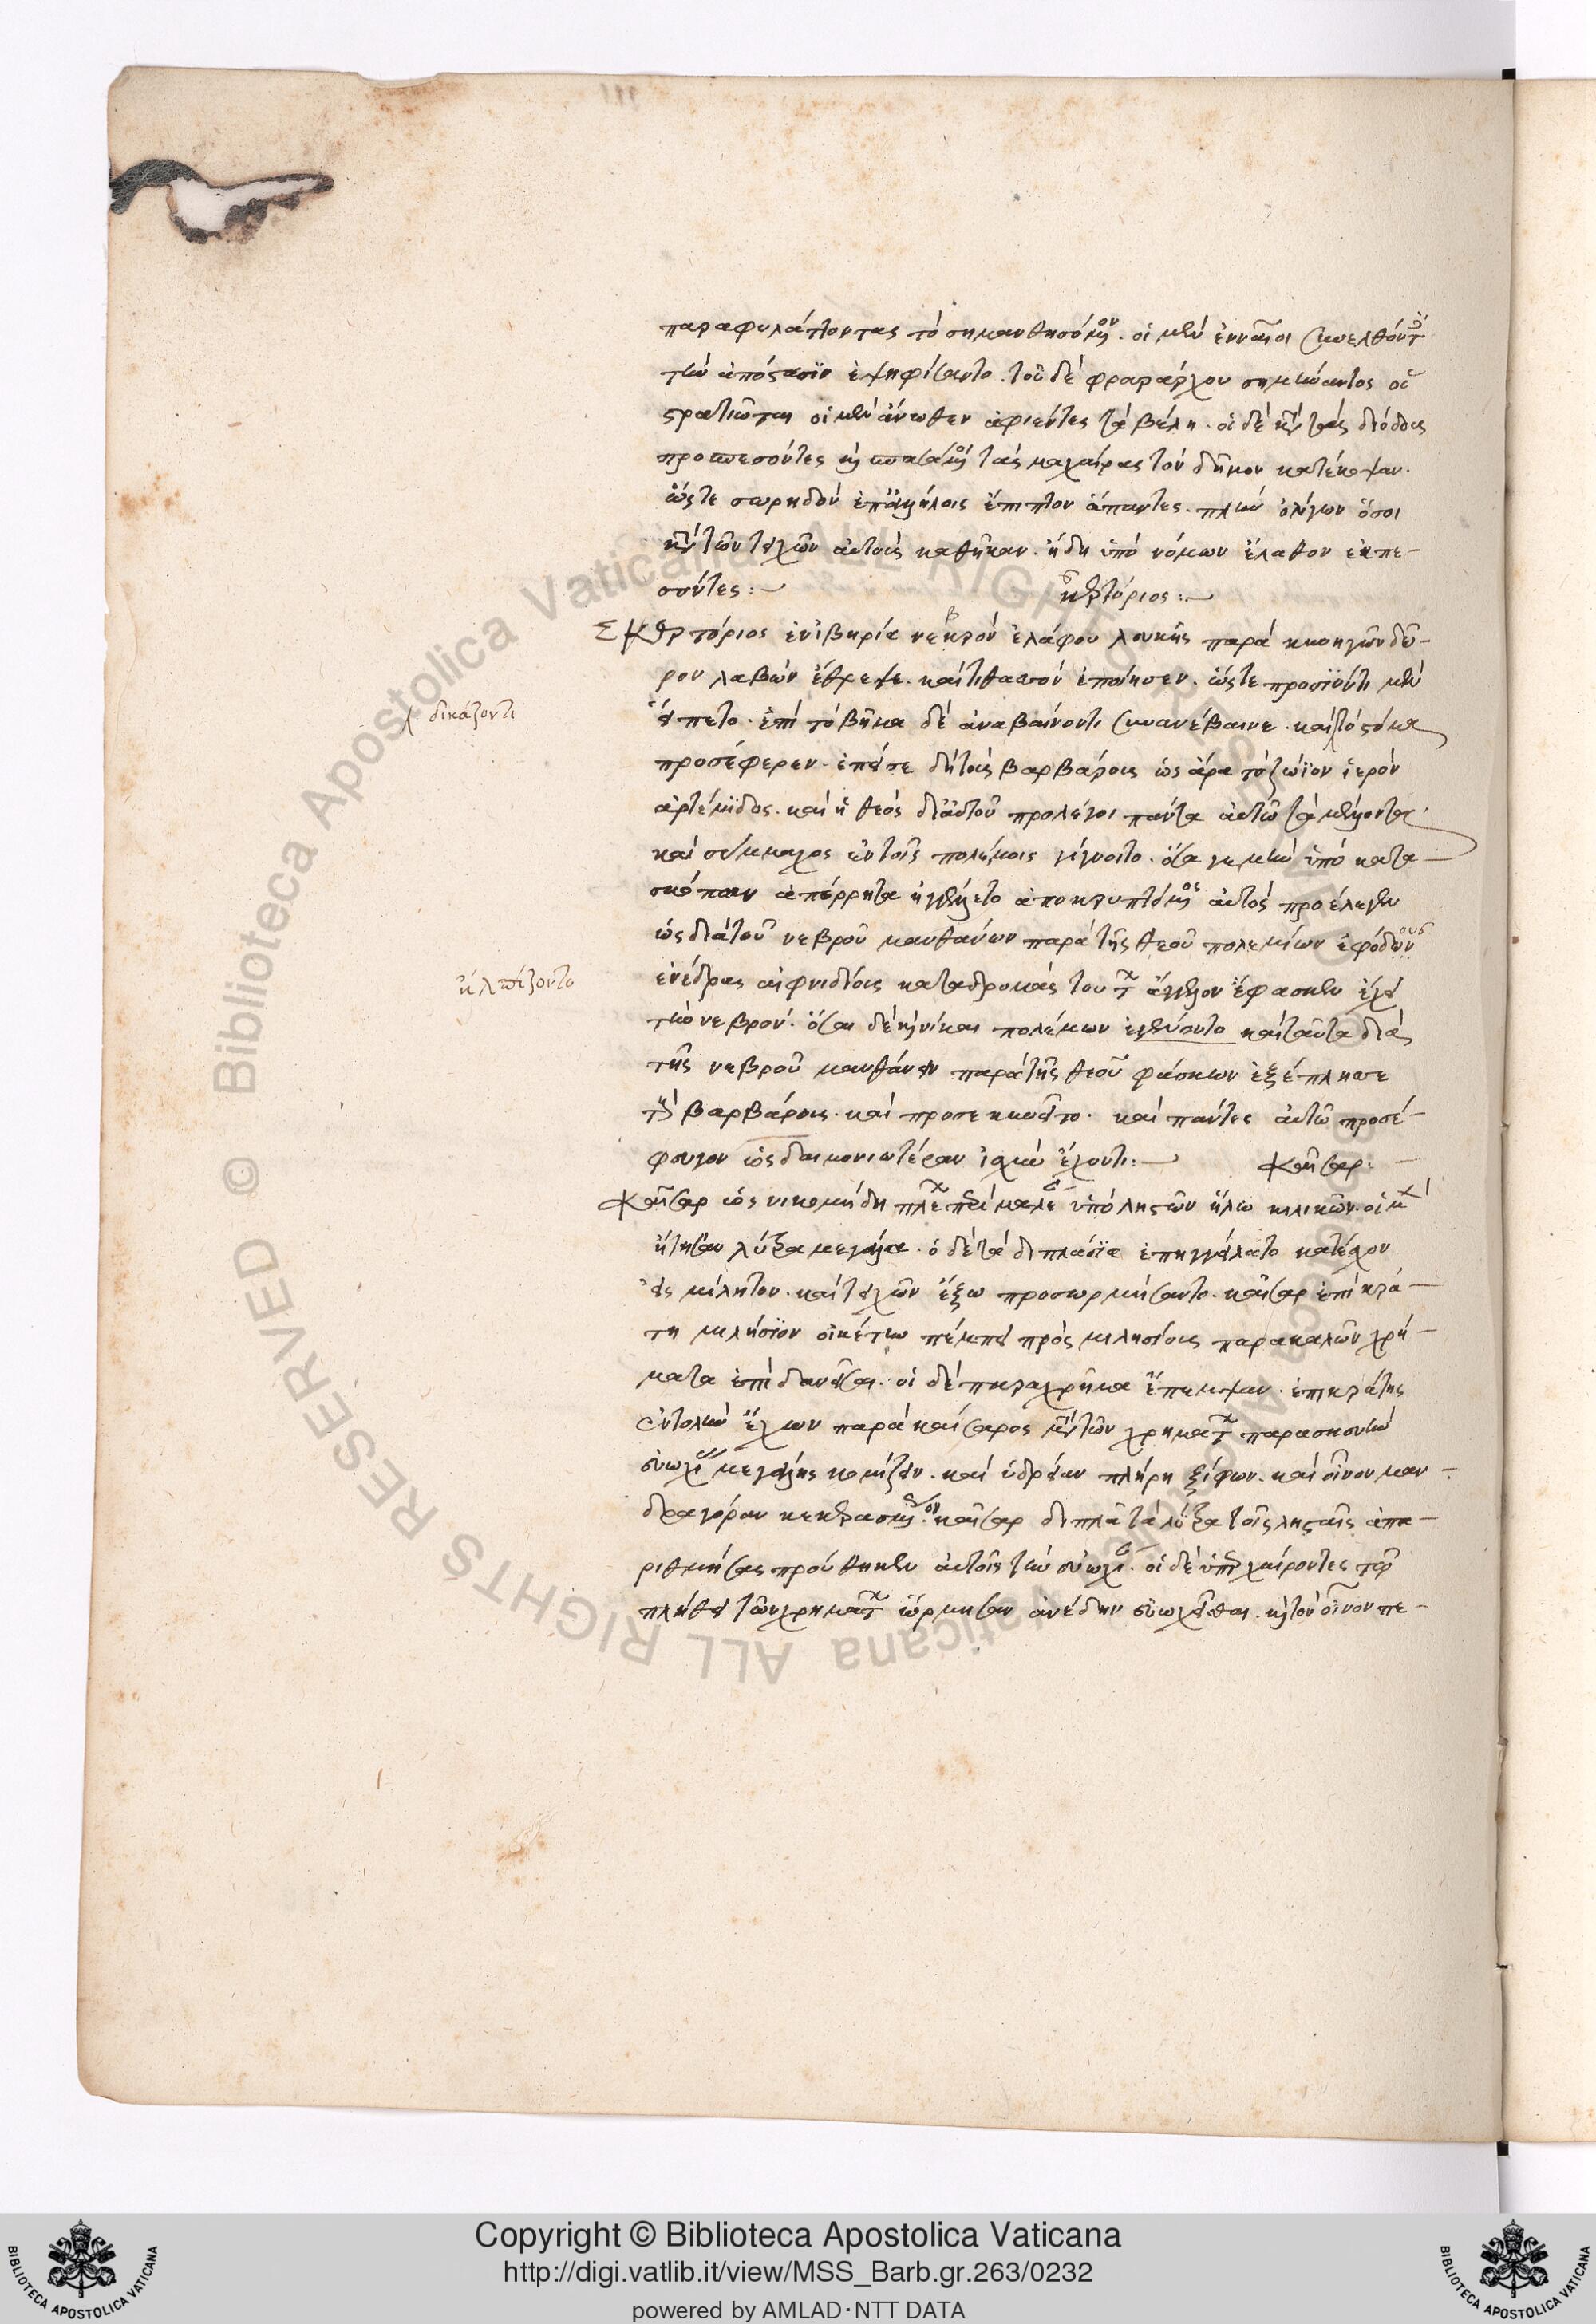 παραφυλάττοντας τὸ σημανθησόμενον. οἱ μὲν ἐνναῖοι συνελθόντες
τὴν ἀπόστασιν ἐψηφίσαντο. τοῦ δὲ φρουράρχου σημήναντος οἱ
στρατιῶται οἱ μὲν ἄνωθεν ἀφιέντες τὰ βέλη. οἱ δὲ κατὰ τὰς διόδους
προπεσόντες καὶ σπασάμενοι τὰς μαχαίρας τὸν δῆμον κατέκοψαν.
ὥστε σωρηδὸν ἐπ' ἀλλήλοις ἔπιπτον ἅπαντες. πλὴν ὀλίγων ὅσοι
κατὰ τῶν τειχῶν αὐτοὺς καθῆκαν. ἤδη ὑπὸ νόμων ἔλαθον ἐκπε-
σόντες:
σερτόριος:
Σερτόριος ἐν ἰβηρίᾳ νεβρὸν ἐλάφου λευκῆς παρὰ κυνηγῶν δῶ-
ρον λαβὼν ἔθρεψε. καὶ τιθασσὸν ἐποίησεν. ὥστε προσϊόντι μὲν
εἵπετο. ἐπὶ τὸ βῆμα δὲ ἀναβαίνοντι συνανέβαινε. καὶ τὸ στόμα
δικάζοντι
προσέφερεν. ἔπεισε δὴ τοὺς βαρβάρους ὡς ἄρα τὸ ζώϊον ἱερὸν
ἀρτέμιδος. καὶ ἡ θεὸς δι' αὐτοῦ προλέγοι πάντα αὐτῷ τὰ μέλλοντα
καὶ σύμμαχος ἐν τοῖς πολέμοις γίγνοιτο. ὅσα γε μὴν ὑπὸ κατα-
σκόπων ἀπόρρητα ἠγγέλλετο ἀποκρυπτόμενος αὐτὸς προέλεγεν
ὡς διὰ τοῦ νεβροῦ μανθάνων παρὰ τῆς θεοῦ πολεμίων ἐφόδους
ἐνέδρας αἰφνιδίους καταδρομὰς τούτων ἄγγελον ἔφασκεν ἔχειν
τὸν νεβρόν. ὅσαι δὲ καὶ νίκαι πολέμων ἐγένοντο καὶ ταῦτα διὰ
ἠλπίζοντο
τῆς νεβροῦ μανθάνειν παρὰ τῆς θεοῦ φάσκων ἐξέπλησσε
τοὺς βαρβάρους. καὶ προσεκυνεῖτο. καὶ πάντες αὐτῷ προσέ-
φευγον ὡς δαιμονιωτέραν ἰσχὺν ἔχοντι:
καῖσαρ:
Καῖσαρ ὡς νικομήδη πλέων περὶ μαλέαν ὑπὸ λῃστῶν ἥλω κιλίκων. οἱ μὲν
ᾔτησαν λύτρα μεγάλα. ὁ δὲ τὰ διπλάσϊα ἐπηγγείλατο κατέχον
εἰς μίλητον. καὶ τειχῶν ἔξω προσωρμήσαντο. καῖσαρ ἐπικρά-
τη μιλήσϊον οἰκέτην πέμπει πρὸς μιλησίους παρακαλῶν χρή-
ματα ἐπιδανεῖσαι. οἱ δὲ παραχρῆμα ἔπεμψαν. ἐπικράτης
ἐντολὴν ἔχων παρὰ καίσαρος μετὰ τῶν χρημάτων παρασκευὴν
εὐωχίας μεγάλης κομίζειν. καὶ ὑδρείαν πλήρη ξίφων. καὶ οἶνον μαν-
δραγόραν κεκρασμένον. καῖσαρ διπλᾶ τὰ λύτρα τοῖς λῃσταῖς ἀπα-
ριθμήσας προύθηκεν αὐτοῖς τὴν εὐωχίαν. οἱ δὲ ὑπερχαίροντες τῷ
πλήθει τῶν χρημάτων ὥρμησαν ἀνέδην εὐωχεῖσθαι. καὶ τὸν οἶνον πε-
Copyright © Biblioteca Apostolica Vaticana
http://digi.vatlib.it/view/MSS_Barb.gr.263/0232
powered by AMLAD·NTT DATA